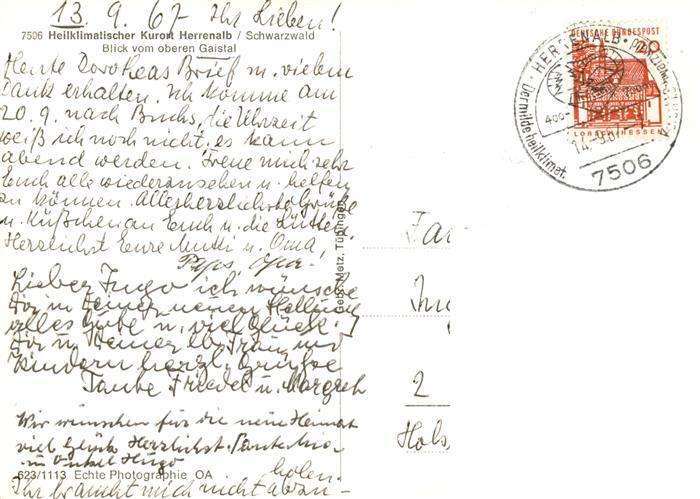 13. 9. 67 Ihr Lieben!
7506 Heilklimatischer Kurort Herrenalb / Schwarzwald
Blick vom oberen Gaistal
Heute Dorotheas Brief m. vielem
Dank erhalten. Ich komme am
20. 9. nach Buchs, die Uhrzeit
weiß ich noch nicht, es kann
abend werden. Freue mich sehr
Euch alle wiederzusehen u. helfen
zu können. Allerherzlichste Grüße
u. Küßchen an Euch u. die
Herzlichst Eure Mutti u. Oma,
Paps, Opa.
Lieber Ingo ich wünsche
Dir in Deiner neuen Stellung
alles Gute u. viel Glück.
Dir u. Deiner lb. Frau und
Kindern herzl. Grüße
Tante Friedel u. Margret
Wir wünschen für die neue Heimat
viel Glück Herzlichst. Tante
u. Onkel Hugo
623/1113 Echte Photographie OA
holen.
Ihr braucht mich nicht abzu-
Gebr. Metz, Tübingen
DEUTSCHE BUNDESPOST
20
LORSCH/HESSEN
HERRENALB
Der milde heilklimat.
400-
14.-9.67
7506
Fa
2
Hols